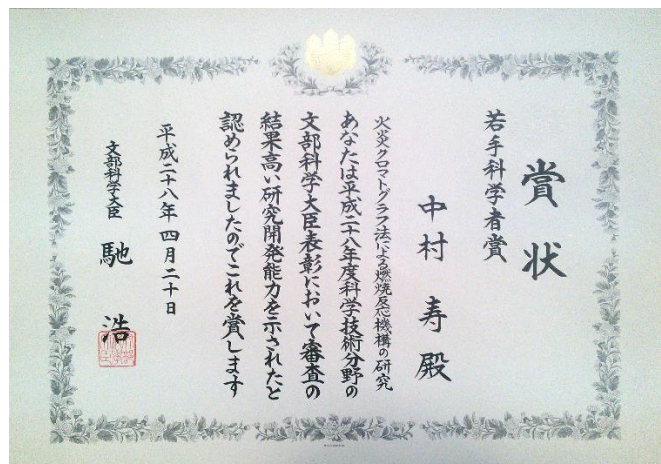 賞状
若手科学者賞
中村 寿 殿
火炎クロマトグラフ法による燃焼反応機構の研究
あなたは平成二十八年度科学技術分野の
文部科学大臣表彰において審査の
結果高い研究開発能力を示されたと
認められましたのでこれを賞します
平成二十八年四月二十日
文部科学大臣 馳 浩